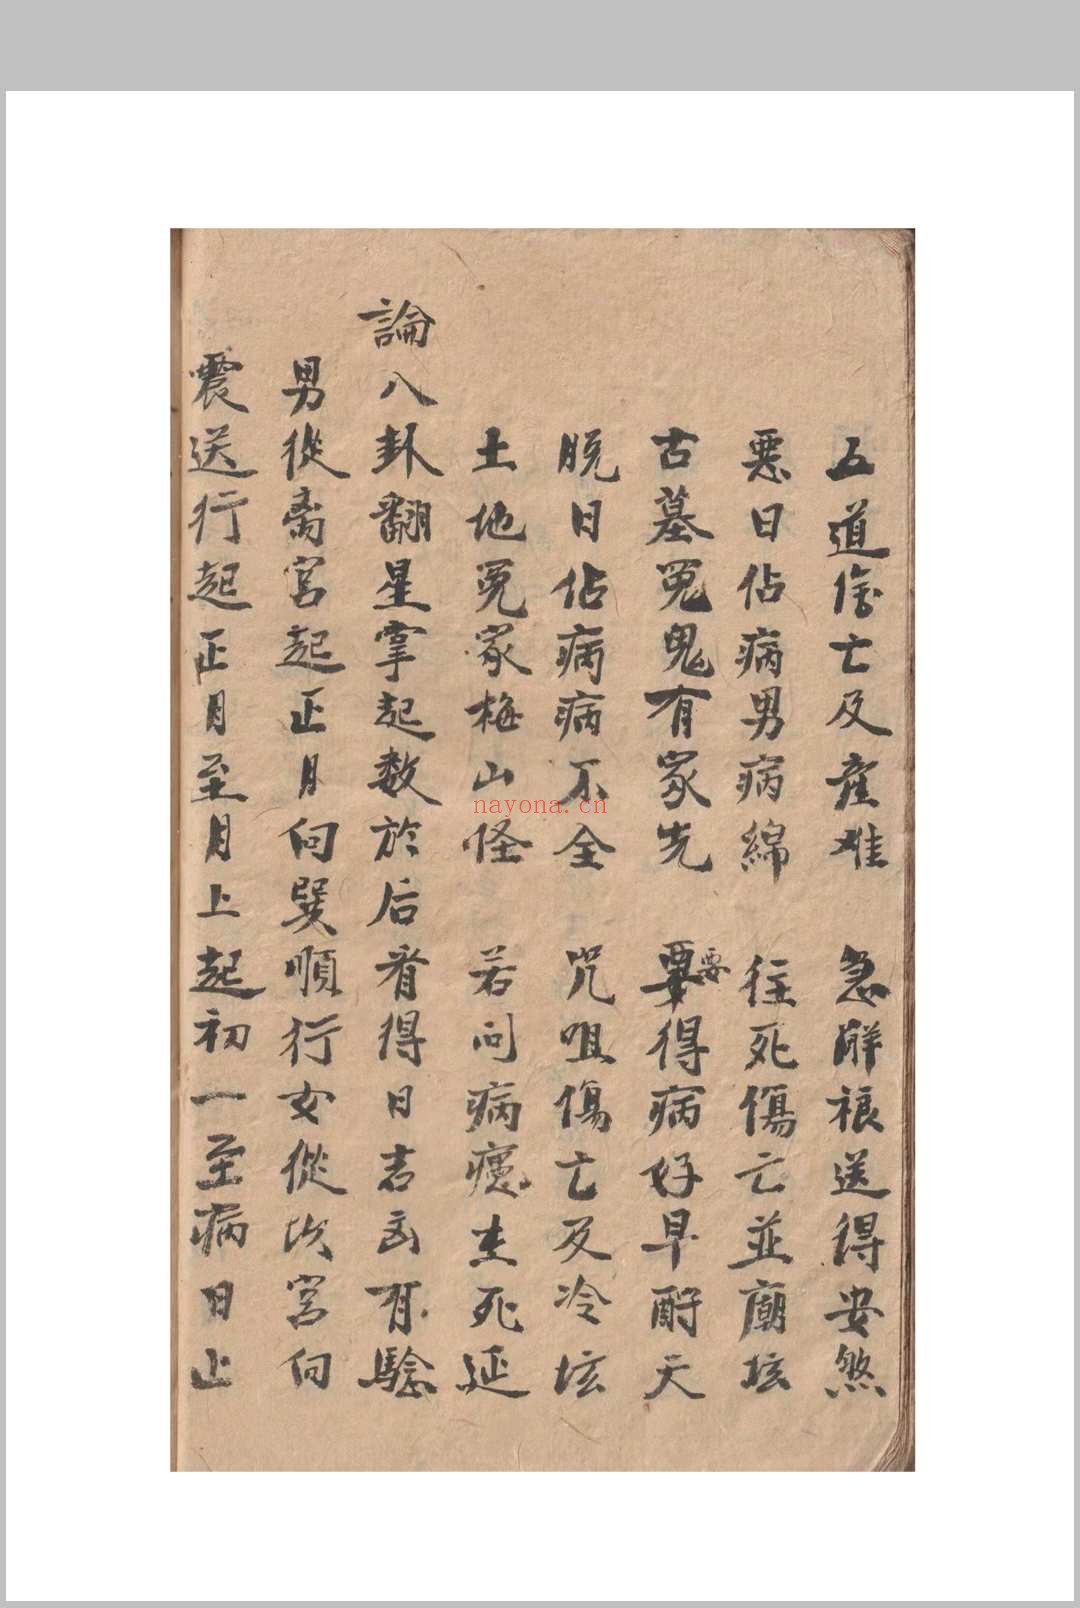 五道傷亡及產难 急解禳送得安然
惡日佔病男病綿 往死傷亡並廟坛
古墓冤鬼有家先 要得病好早酧天
脱日佔病病不全 咒咀傷亡及冷坛
土地冤家梅山怪 若问病癔生死延
論八卦翻星掌起数於后看得日吉凶有驗
男從离宫起正月向巽順行女從坎宫向
震送行起正月至月上起初一至病日止
nayona.cn